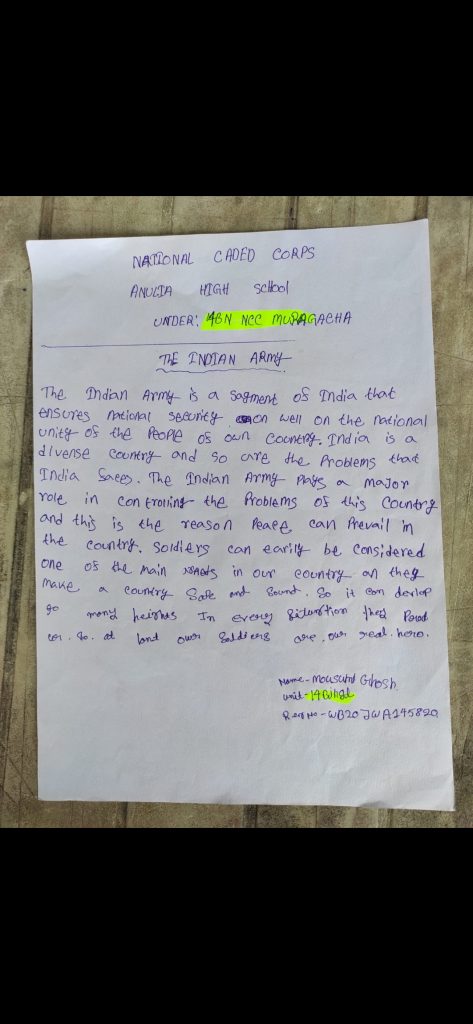 NATIONAL CADED CORPS
ANULIA HIGH School
UNDER: 4BN NCC MURAGACHA
THE INDIAN ARMY
The Indian Army is a sagment of India that
ensures national security on well on the national
unity of the People of own Country. India is a
divense country and so are the Problems that
India faces. The Indian Army Plays a major
role in controlling the Problems of this Country
and this is the reason Peace can Prevail in
the country. Soldiers can earily be considered
one of the main in our country an they
make a country Safe and Sound. So it can devlop
go many heights In every Situation they
so. at last own Soldiers are our real hero.
Name - Mousumi Ghosh
unit -
Reg No - WB20JWA145820